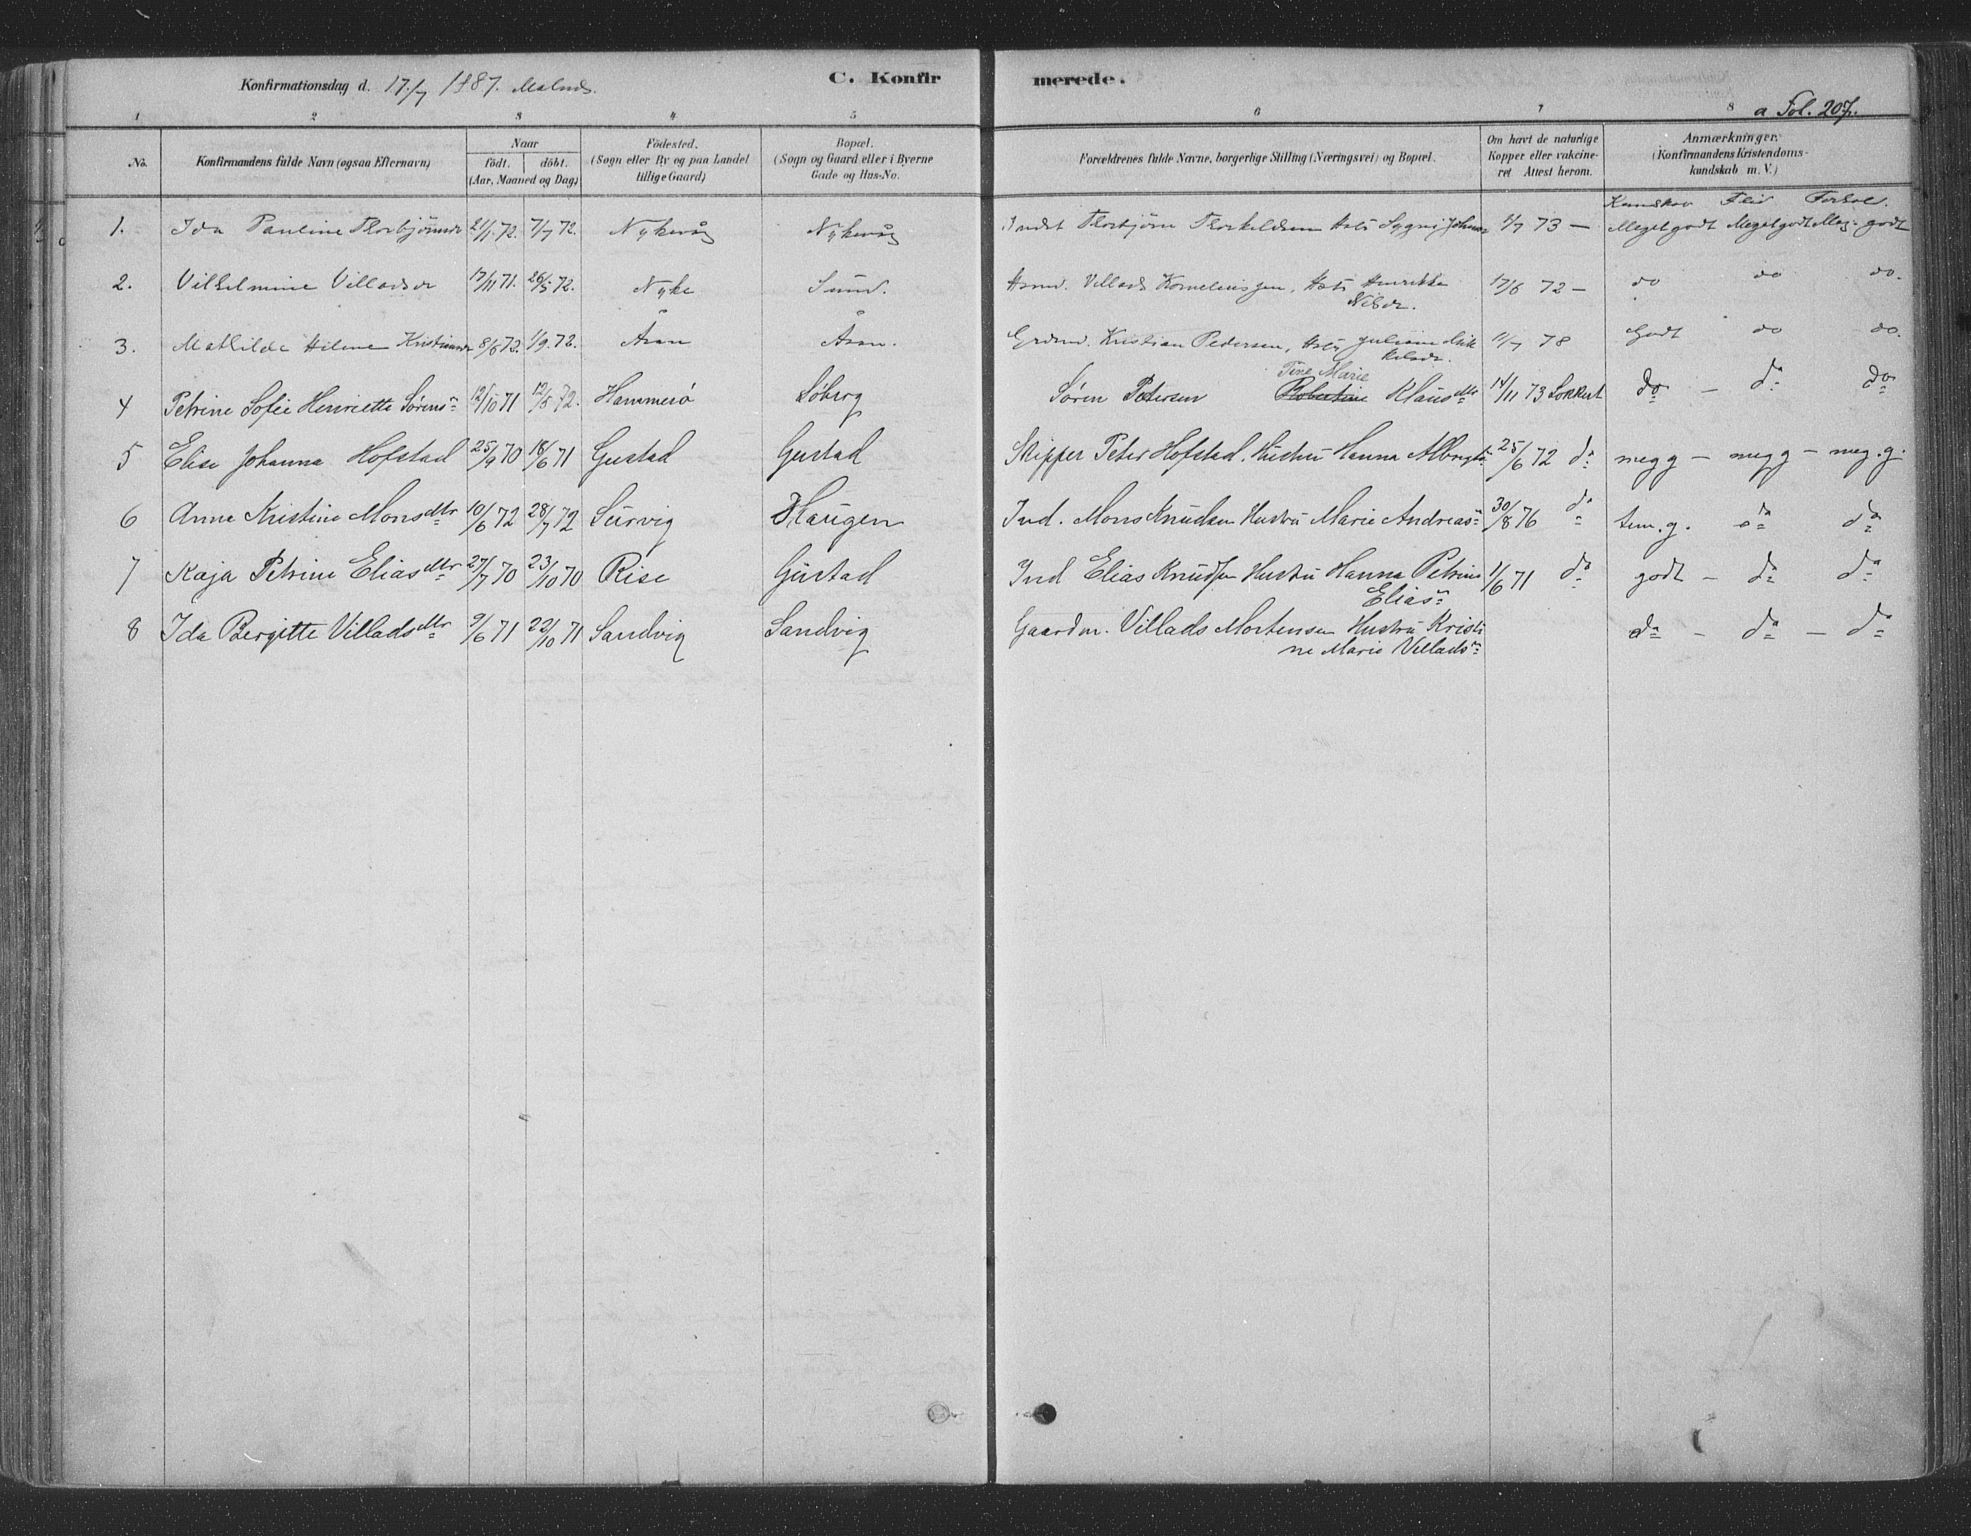 Konfirmationsdag d. 17/7 1887. Malnes. C. Konfirmerede.
a Fol. 207.
1 2 3 4 5 6 7 8
No. Konfirmandens fulde Navn (ogsaa Efternavn) Naar födt. döbt. (Aar, Maaned og Dag) Födested. (Sogn eller By og paa Landet tillige Gaard) Bopæl. (Sogn og Gaard eller i Byerne Gade og Hus-No. Forældrenes fulde Navne, borgerlige Stilling (Næringsvei) og Bopæl. Om havt de naturlige Kopper eller vakcineret Attest herom. Anmærkninger. (Konfirmandens Kristendomskundskab m. V.)
Kundskab Flid Forhold.
1. Ida Pauline Thorbjörnsdr 21/1 72. 7/7 72. Nykvåg Nykvåg Indst Thorbjörn Thorkeldsen Hstr Sygni Johns 1/7 73 — Megetgodt Megetgodt Meg. godt
2. Vilhelmine Villadsdr 17/11 71. 26/5 72. Nyke Sund. Hsmd. Villads Kornelensjen, Hstr Henrikke 17/6 72 — do do do.
Nilsdr.
3. Mathilde Helene Kristiansdr 8/6 72. 1/9 72. Åsan Åsan. Grdmd. Kristian Pedersen, Hstr Juliane Mik 11/7 78 Godt do do.
kelsdr.
Tine Marie
4 Petrine Sofie Henriette Sørensn 12/10 71 12/5 72. Hammerö Søberg Søren Petersen Robertine Klausdtr 14/11 73 Lokkert do — do do
5 Elise Johanna Hofstad 25/9 70 18/6 71 Gustad Gustad Skipper Peter Hofstad. Hustru Hanna Albrigtn 25/6 72 do meg g — meg g — meg. g.
6 Anne Kristine Monsdtr 10/6 72 28/7 72 Survig Haugen Ind. Mons Knudsen Hustru Marie Andreasn 30/8 76 do tem. g. do do
7 Kaja Petrine Eliasdtr 27/7 70 23/10 70 Rise Gustad Ind Elias Knudsen Hustru Hanna Petrine 1/6 71 do godt — do do
Eliasn
8 Ida Bergitte Villadsdtr 9/6 71 22/10 71 Sandvig Sandvig Gaardm. Villads Mortensen Hustru Kristi do — do — do
ne Marie Villadsn